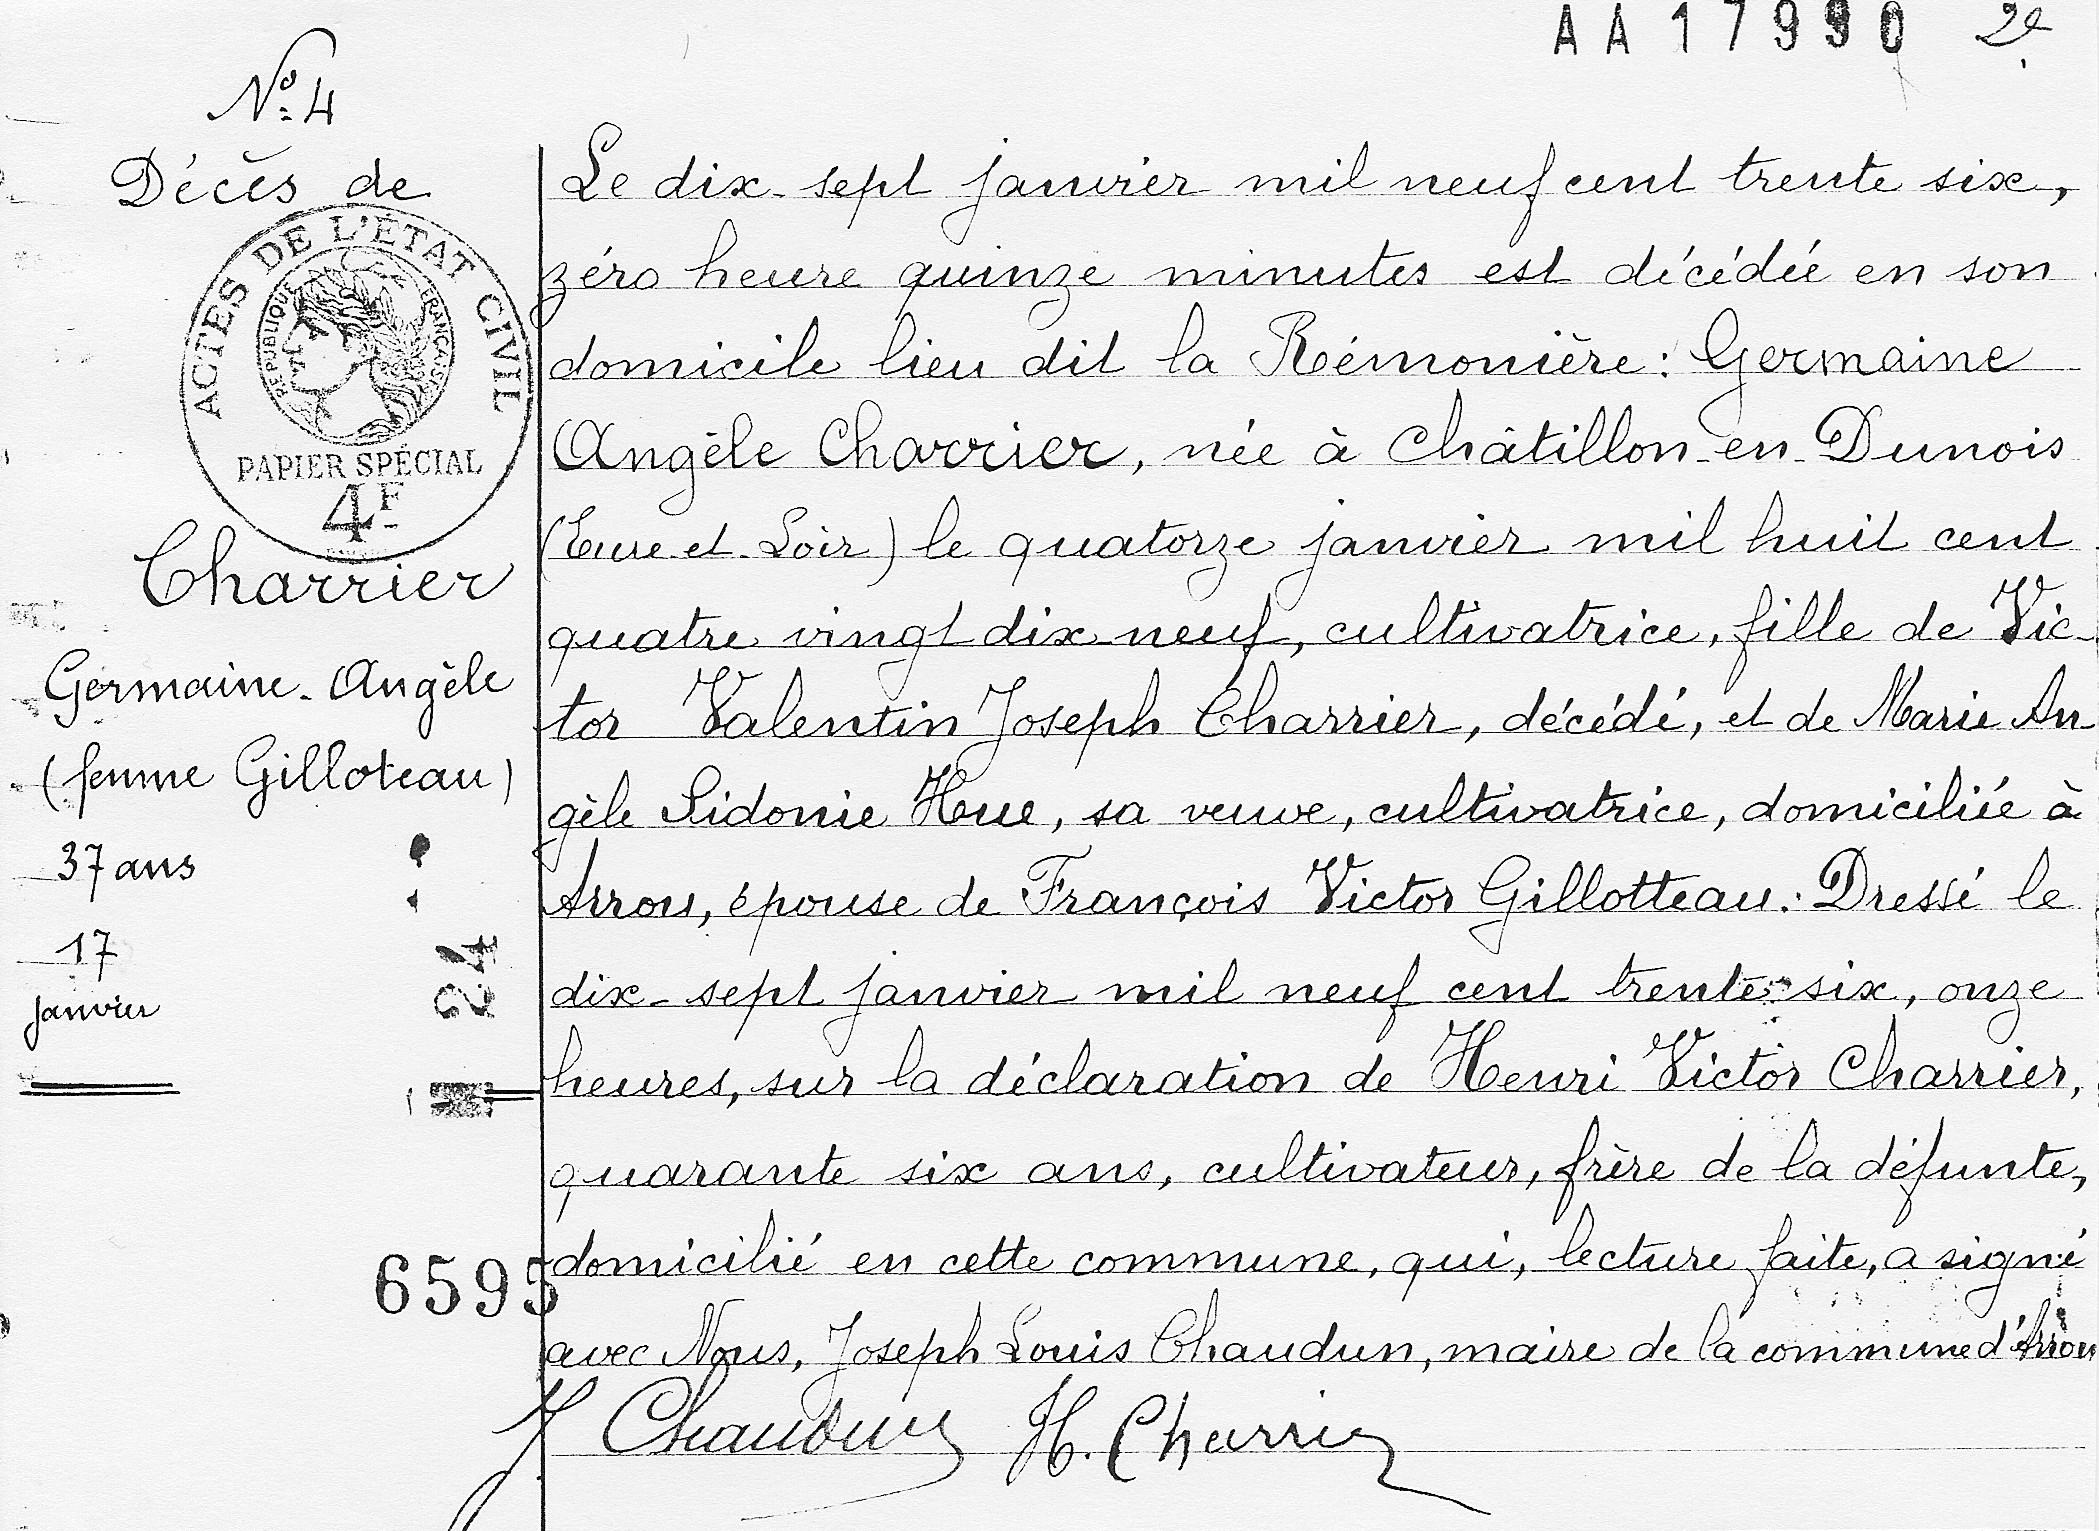 AA17990 2e
N° 4
Décès de
ACTES DE L'ÉTAT CIVIL
RÉPUBLIQUE FRANÇAISE
PAPIER SPÉCIAL
4F
Charrier
Germaine-Angèle
(femme Gilloteau)
37 ans
17
janvier
24
6595
Le dix-sept janvier mil neuf cent trente six,
zéro heure quinze minutes est décédée en son
domicile lieu dit la Rémonière : Germaine
Angèle Charrier, née à Châtillon-en-Dunois
(Eure-et-Loir) le quatorze janvier mil huit cent
quatre vingt dix-neuf, cultivatrice, fille de Vic-
tor Valentin Joseph Charrier, décédé, et de Marie An
gèle Sidonie Hue, sa veuve, cultivatrice, domiciliée à
Arrou, épouse de François Victor Gillotteau. Dressé le
dix-sept janvier mil neuf cent trente-six, onze
heures, sur la déclaration de Henri Victor Charrier,
quarante six ans, cultivateur, frère de la défunte,
domicilié en cette commune, qui, lecture faite, a signé
avec Nous, Joseph Louis Chaudun, maire de la commune d'Arrou
J Chaudun H. Charrier